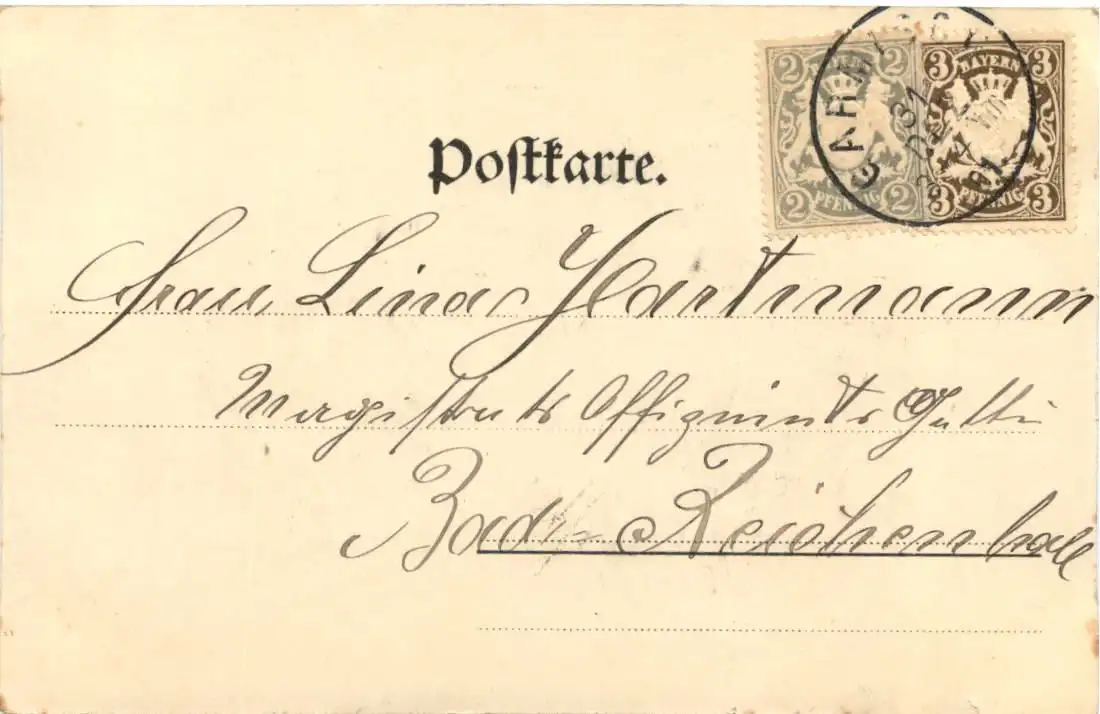 2 2 3 BAYERN 3
GARMISCH
31 DEZ
2 PFENNIG 2 3 PFENNIG 3
Postkarte.
Frau Lina Hartmann
Magistrats Offizients Gattin
Bad-Reichenhall